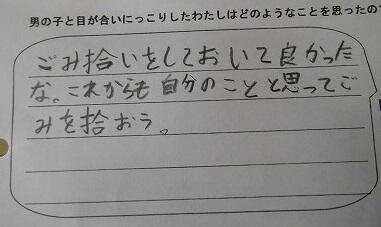 男の子と目が合いにっこりしたわたしはどのようなことを思ったの
ごみ拾いをしておいて良かった
な。これからも自分のことと思ってご
みを拾おう。